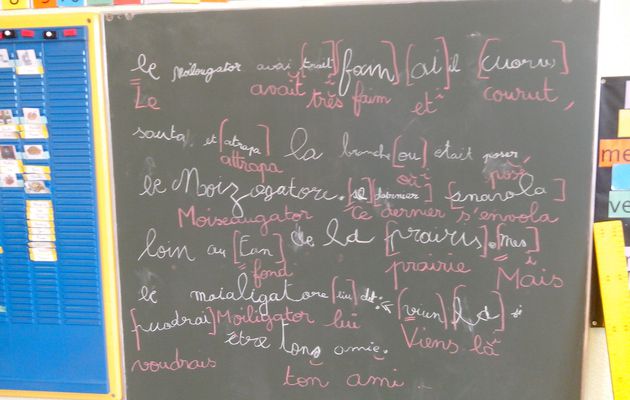 le Moilougator avai [trait] [fain] [ai] il [cuorus]
Le avait très faim et courut,
sauta et [atrapa] la branche [ou] etait poser
attrapa où posé
le Moizogatore. [se] [darnier] [snavola]
Moiseaugator Ce dernier s'envola
loin au [Fan] de la [prairis]. [mes]
fond prairie Mais
le moialigatore [lui] dit: « [vien] [la] si
[vuodrai] Moiligator lui Viens là
être tong amie.
voudrais ton ami.
me
ve